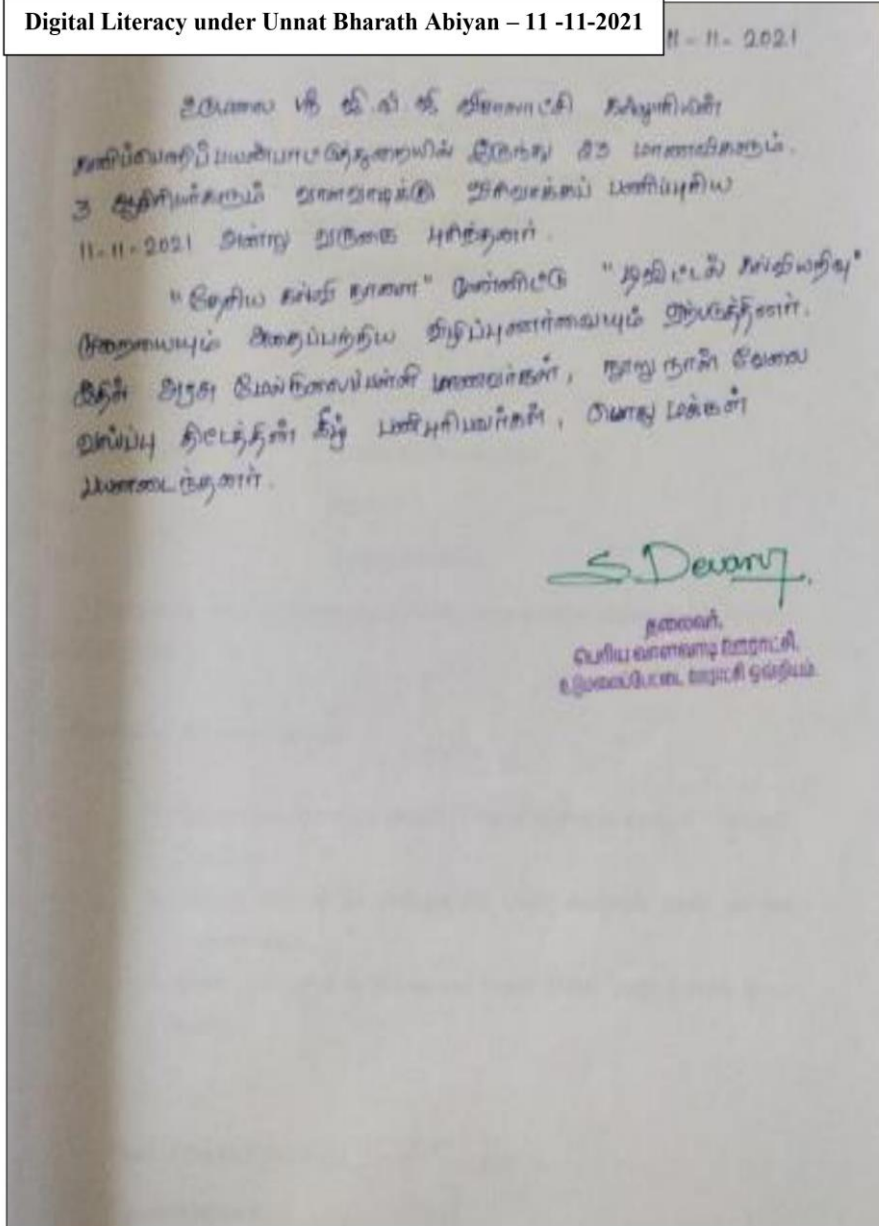 Digital Literacy under Unnat Bharath Abiyan – 11 -11-2021
11 - 11 - 2021
உடுமலை ஸ்ரீ ஜி.வி.ஜி விசாலாட்சி கல்லூரியின்
கணிப்பொறிப்பயன்பாட்டுத்துறையில் இருந்து 23 மாணவிகளும்.
3 ஆசிரியர்களும் வாளவாடிக்கு விரிவாக்கப் பணிப்புரிய
11-11-2021 அன்று வருகை புரிந்தனர்.
"தேசிய கல்வி நாளை" முன்னிட்டு "டிஜிட்டல் கல்வியறிவு"
முறையையும் அதைப்பற்றிய விழிப்புணர்வையும் ஏற்படுத்தினர்.
இதில் அரசு மேல்நிலைப்பள்ளி மாணவர்கள், நூறு நாள் வேலை
வாய்ப்பு திட்டத்தின் கீழ் பணிபுரியவர்கள், பொது மக்கள்
பயனடைந்தனர்.
S. Devaraj.
தலைவர்,
பெரிய வாளவாடி ஊராட்சி,
உடுமலைப்பேட்டை ஊராட்சி ஒன்றியம்.